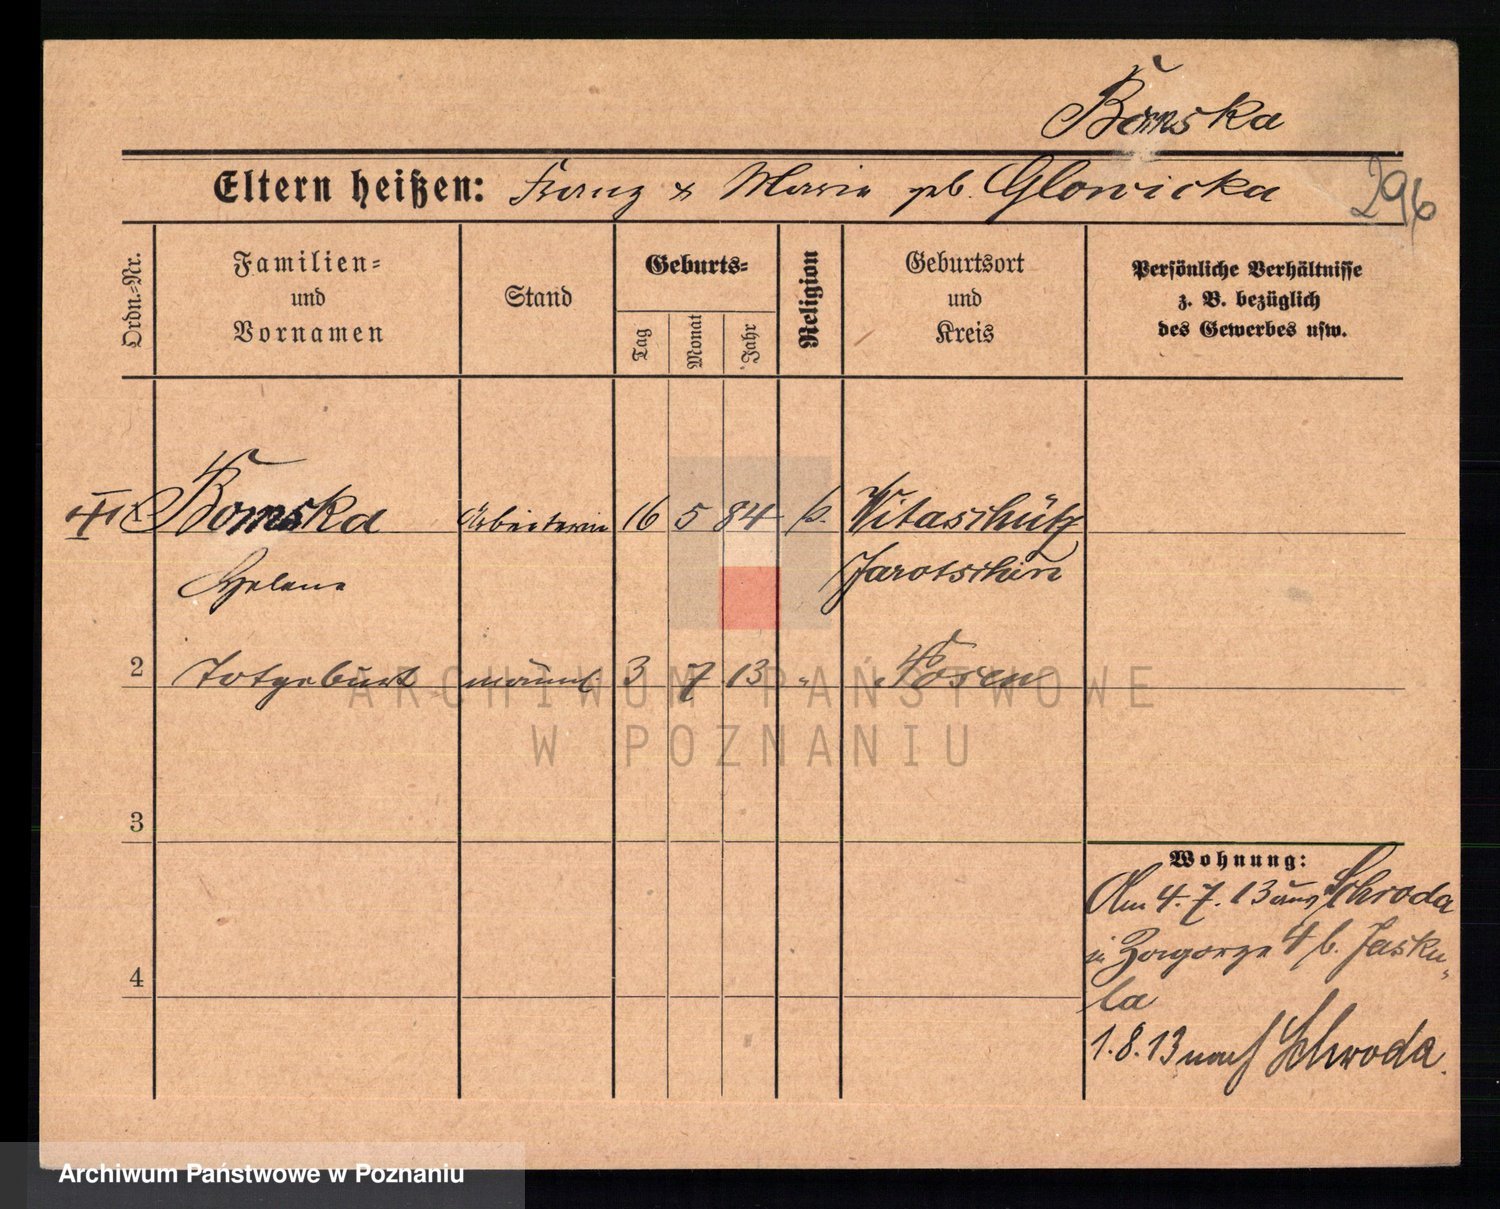 Bomska
Eltern heißen: Franz & Marie geb. Glowicka
296
Ordn.-Nr.
Familien-
und
Vornamen
Stand
Geburts-
Tag
Monat
Jahr
Religion
Geburtsort
und
Kreis
Persönliche Verhältnisse
z. B. bezüglich
des Gewerbes usw.
Bomska Arbeiterin 16 5 84 k. Witaschütz
Helene Jarotschin
2 Totgeburt männl. 3 7 13 " Posen
3
4
Wohnung:
Am 4.7.13 aus Schroda
in Zagorze 4 b. Jasku„
la
1.8.13 nach Schroda.
ARCHIWUM PAŃSTWOWE
W POZNANIU
Archiwum Państwowe w Poznaniu